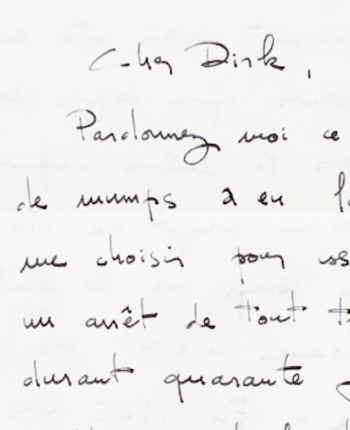 Cher Dirk,
Pardonnez moi ce
de mumps a eu l
me choisir pour
un arrêt de tout t
durant quarante